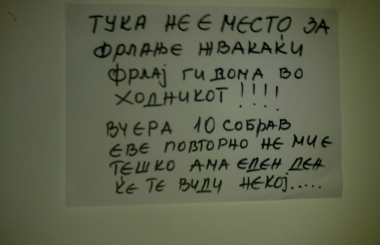 ТУКА НЕ Е МЕСТО ЗА
ФРЛАЊЕ ЖВАКАЌИ
ФРЛАЈ ГИ ДОМА ВО
ХОДНИКОТ !!!!
ВЧЕРА 10 СОБРАВ
ЕВЕ ПОВТОРНО НЕ МИ Е
ТЕШКО АМА ЕДЕН ДЕН
ЌЕ ТЕ ВИДИ НЕКОЈ.....